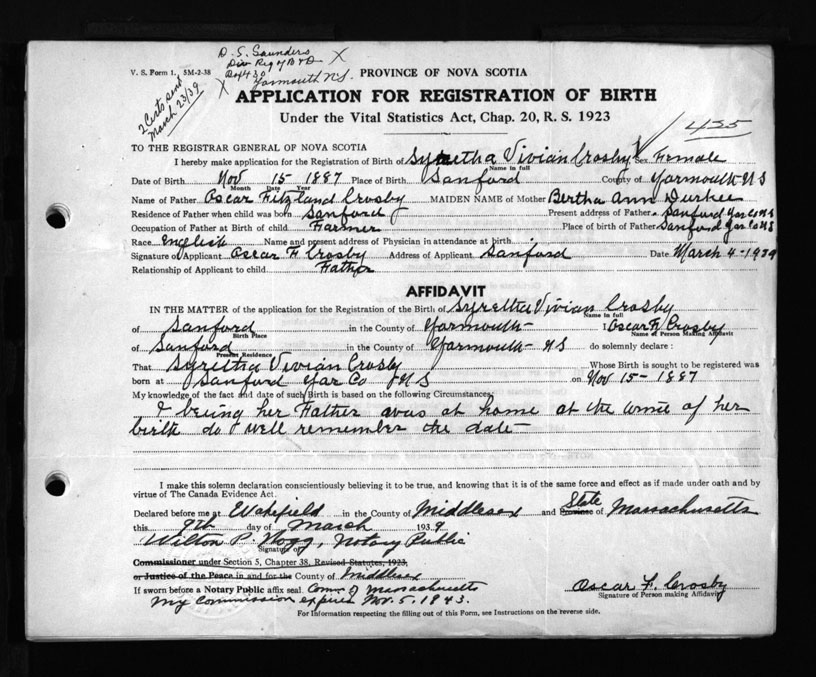 D. S. Saunders
Div Reg of B & D X
V. S. Form 1. 5M-2-38 Box 430 PROVINCE OF NOVA SCOTIA
X Yarmouth N.S.
2 Certs sent
March 23/39
APPLICATION FOR REGISTRATION OF BIRTH
Under the Vital Statistics Act, Chap. 20, R. S. 1923
435
TO THE REGISTRAR GENERAL OF NOVA SCOTIA
I hereby make application for the Registration of Birth of Syretha Vivian Crosby Sex Female
Name in full
Date of Birth Nov 15 1887 Place of Birth Sanford County of Yarmouth N S
Month Date Year
Name of Father Oscar Fitzland Crosby MAIDEN NAME of Mother Bertha Ann Durkee
Residence of Father when child was born Sanford Present address of Father Sanford Yar Co N S
Occupation of Father at Birth of child Farmer Place of birth of Father Sanford Yar Co N S
Race English Name and present address of Physician in attendance at birth
Signature of Applicant Oscar F Crosby Address of Applicant Sanford Date March 4 - 1939
Relationship of Applicant to child Father
AFFIDAVIT
IN THE MATTER of the application for the Registration of the Birth of Syretha Vivian Crosby
Name in full
of Sanford in the County of Yarmouth I Oscar F Crosby
Birth Place Name of Person Making Affidavit
of Sanford in the County of Yarmouth N S do solemnly declare :
Present Residence
That Syretha Vivian Crosby Whose Birth is sought to be registered was
born at Sanford Yar Co N S on Nov 15 - 1887
My knowledge of the fact and date of such Birth is based on the following Circumstances:
I being her Father was at home at the time of her
birth do I well remember the date -
I make this solemn declaration conscientiously believing it to be true, and knowing that it is of the same force and effect as if made under oath and by
virtue of The Canada Evidence Act.
State
Declared before me at Wakefield in the County of Middlesex and Province of Massachusetts
this 9th day of March 1939
Wilton P. Hogg, Notary Public
Signature of
Commissioner under Section 5, Chapter 38, Revised Statutes, 1923,
or Justice of the Peace in and for the County of Middlesex
If sworn before a Notary Public affix seal. Comm. of Massachusetts Oscar F. Crosby
Signature of Person making Affidavit
My Commission expires Nov. 5, 1943.
For Information respecting the filling out of this Form, see Instructions on the reverse side.